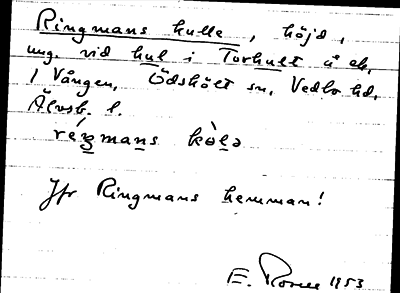 Ringmans kulle, höjd,
ung. vid hul i Torhult å ek.
1 Vången, Ödskölt sn, Vedbo hd,
Älvsb. l.
Jfr Ringmans hemman!
E. 1953